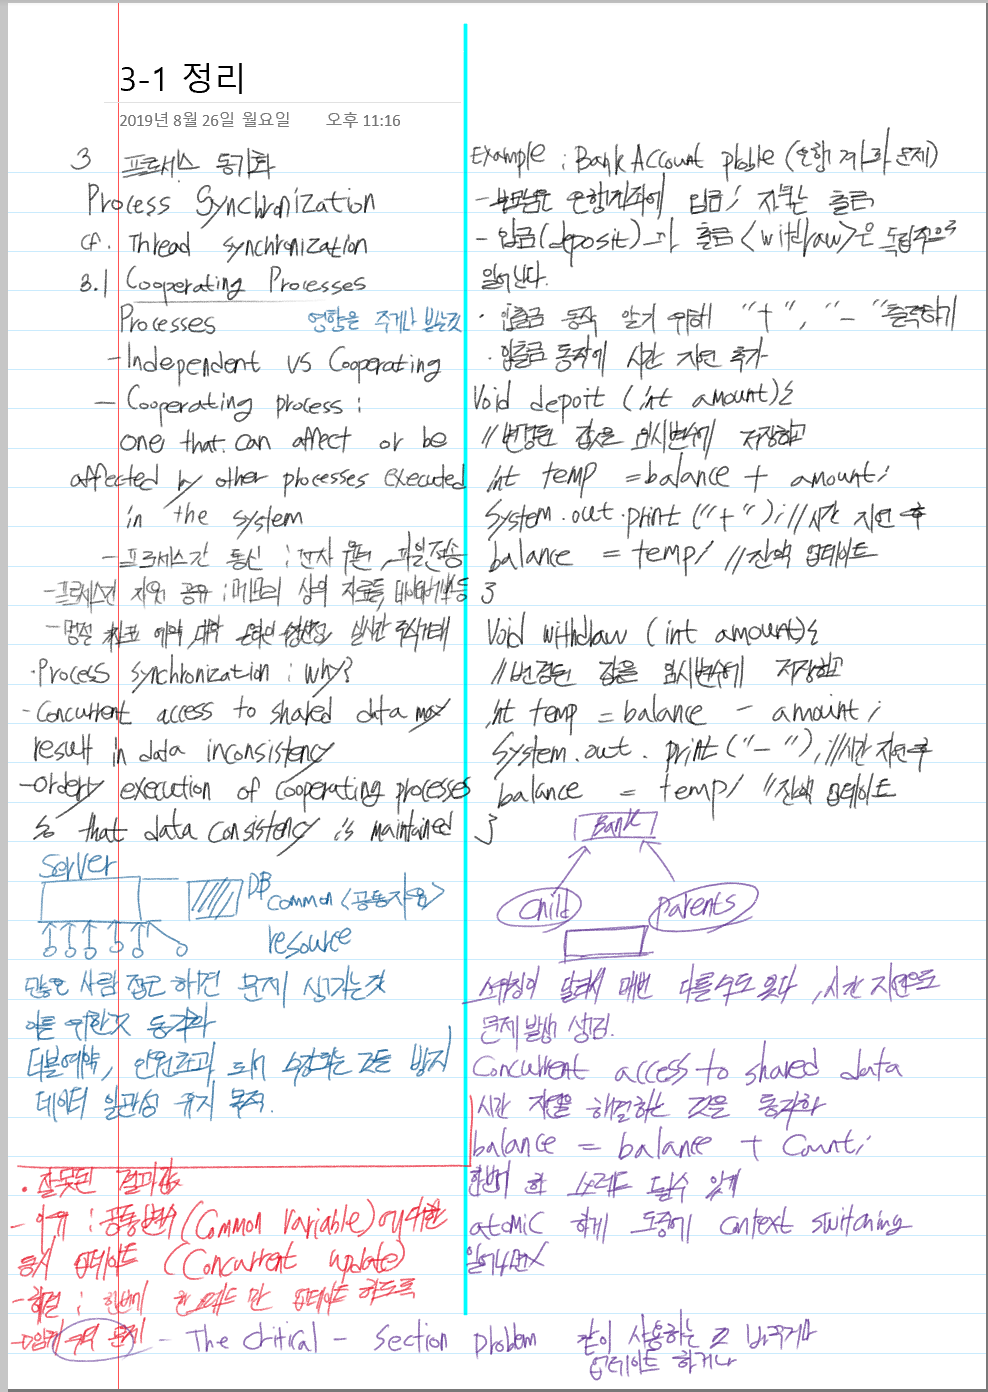 3-1 정리
2019년 8월 26일 월요일 오후 11:16
3 프로세스 동기화
Process Synchronization
cf. Thread synchronization
3.1 Cooperating Processes
Processes 영향을 주거나 받는것
- Independent VS Cooperating
- Cooperating process :
one that can affect or be
affected by other processes executed
in the system
- 프로세스간 통신 : 전자 우편, 파일전송
- 프로세스간 자원 공유 : 메모리 상의 자료들, 데이터베이스 등
- 명절 기차표 예약, 대학 온라인 수강신청, 실시간 주식거래
· Process synchronization : why?
- Concurrent access to shared data may
result in data inconsistency
- Orderly execution of cooperating processes
so that data consistency is maintained
Server
DB
common <공통자원>
resource
많은 사람 접근 하면 문제 생기는것
이를 위한것 동기화
더블예약, 인원초과 되어 수강하는 것을 방지
데이터 일관성 유지 목적.
· 잘못된 결과값
- 이유 : 공통변수 (Common Variable)에 대한
동시 업데이트 (Concurrent update)
- 해결 : 한번에 한 쓰레드만 업데이트 하도록
- 임계구역 문제 - The Critical - Section problem
Example : Bank Account ploble (은행 계좌 문제)
- 부모님은 은행계좌에 입금; 자녀는 출금
- 입금(deposit)과 출금<withdraw>은 독립적으로
일어난다.
· 입출금 동작 알기 위해 "+", "-" 출력하기
· 입출금 동작에 시간 지연 추가
Void depoit (int amount){
//변경된 값을 임시변수에 저장하고
int temp = balance + amount;
System.out.print("+"); //시간 지연 후
balance = temp; //잔액 업데이트
}
Void withdraw (int amount){
//변경된 값을 임시변수에 저장하고
int temp = balance - amoint;
System.out. print("-"); //시간 지연 후
balance = temp; //잔액 업데이트
}
Bank
Child Parents
스위칭이 달라서 매번 다를수도 있다, 시간 지연으로
문제 발생 생김.
Concurrent access to shared data
시간 지연을 해결하는 것을 동기화
balance = balance + Count;
한번에 한 쓰레드 도달수 있게
atomic 하게 도중에 context switching
일어나면X
같이 사용하는 것 바꾸거나
업데이트 하거나